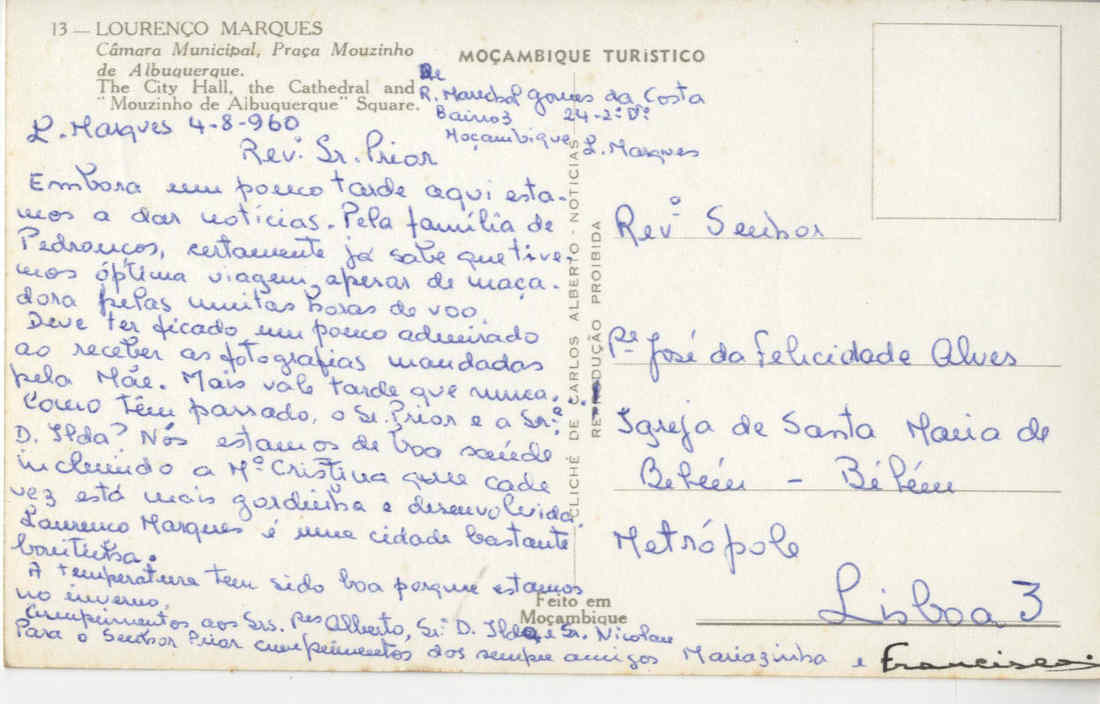 13 — LOURENÇO MARQUES
Câmara Municipal, Praça Mouzinho
de Albuquerque.
The City Hall, the Cathedral and
"Mouzinho de Albuquerque" Square.
MOÇAMBIQUE TURÍSTICO
De
R. Marechal Gomes da Costa
Bairro 3 24-2º Dº
Moçambique L. Marques
L. Marques 4-8-960
Revº Sr. Prior
Embora um pouco tarde aqui esta-
mos a dar notícias. Pela família de
Pedrouços, certamente já sabe que tive-
mos óptima viagem, apesar de maça-
dora pelas muitas horas de voo.
Deve ter ficado um pouco admirado
ao receber as fotografias mandadas
pela Mãe. Mais vale tarde que nunca...
Como têm passado, o Sr. Prior e a Srª
D. Ilda? Nós estamos de boa saúde
incluindo a Mª Cristina que cada
vez está mais gordinha e desenvolvida.
Lourenço Marques é uma cidade bastante
bonitinha.
A temperatura tem sido boa porque estamos
no inverno.
Cumprimentos aos Srs. Pes Alberto, Srª D. Ilda e Sr. Nicolau
Para o Senhor Prior cumprimentos dos sempre amigos Mariazinha e Francisco
CLICHÉ DE CARLOS ALBERTO - NOTICIAS
REPRODUÇÃO PROIBIDA
Revº Senhor
Pe José da Felicidade Alves
Igreja de Santa Maria de
Belém - Bélém
Metrópole
Lisboa 3
Feito em
Moçambique